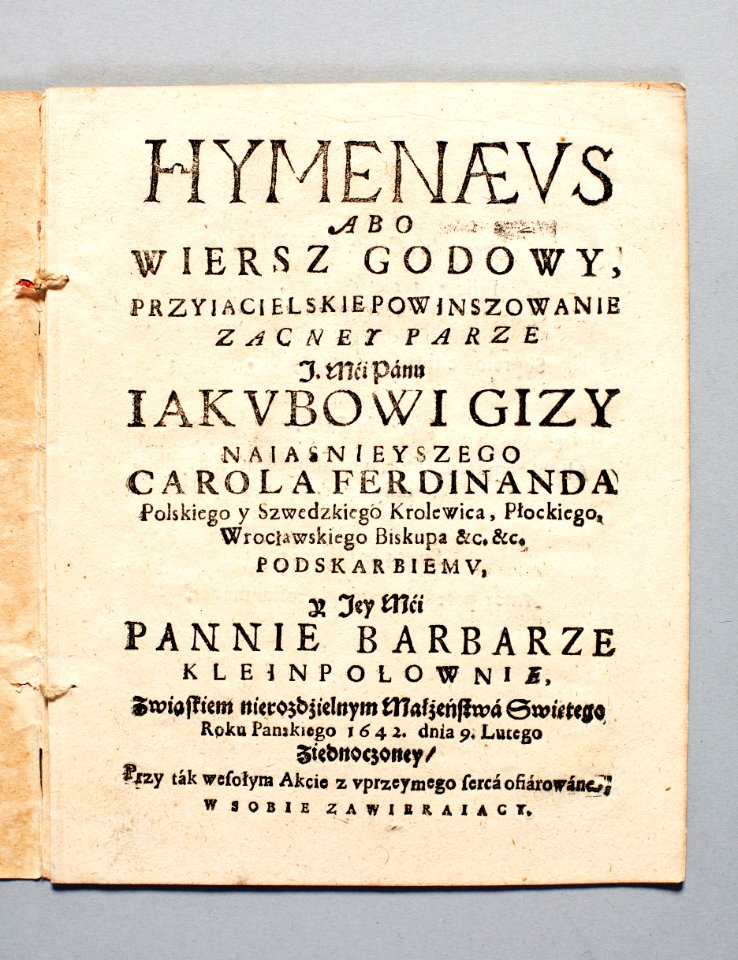 HYMENÆVS
ABO
WIERSZ GODOWY,
PRZYIACIELSKIE POWINSZOWANIE
ZACNEY PARZE
J. Mći Pánu
IAKVBOWI GIZY
NAIASNIEYSZEGO
CAROLA FERDINANDA
Polskiego y Szwedzkiego Krolewica, Płockiego,
Wrocławskiego Biskupa &c. &c.
PODSKARBIEMV,
Y Jey Mći
PANNIE BARBARZE
KLEINPOLOWNIE,
Zwiąſkiem nierozdźielnym Małżeńſtwá Swietego
Roku Panskiego 1642. dnia 9. Lutego
Ziednoczoney/
Przy ták wesołym Akcie z vprzeymego ſercá ofiárowáne,
W SOBIE ZAWIERAIACY.